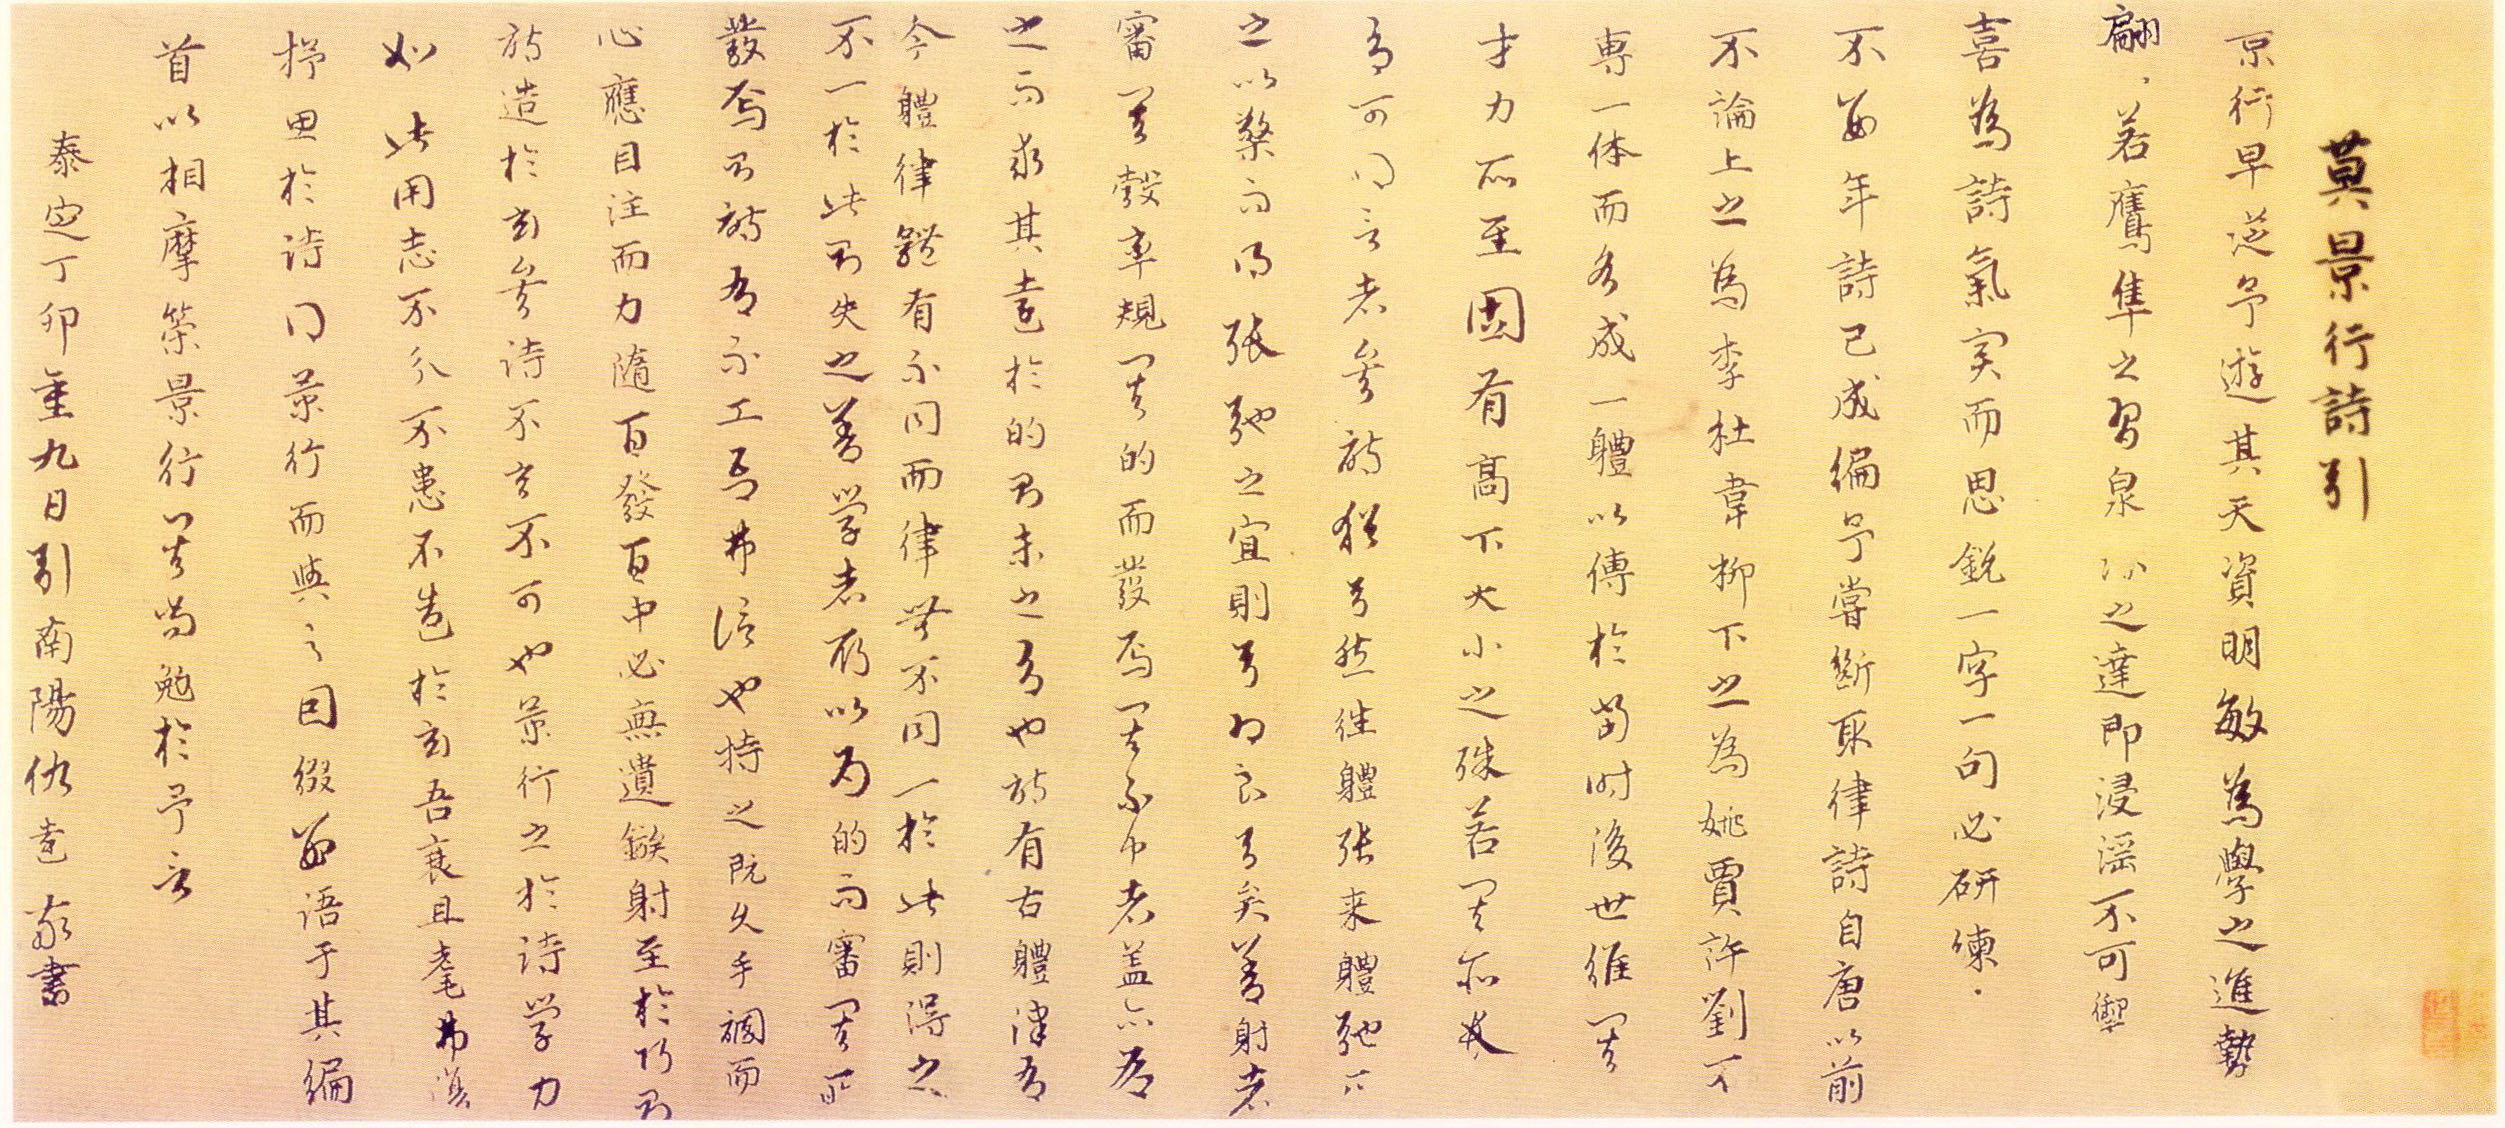 莫景行詩引
京行早從予遊其天資明敏為學之進勢
翩〻若鷹隼之習泉水之達即浸滛不可禦
喜為詩氣实而思銳一字一句必研煉〻
不數年詩已成編予嘗斷取律詩自唐以前
不論上之為李杜韋柳下之為姚賈許劉下
專一体而各成一體以傳於當时後世維其
才力所至固有高下大小之殊若其所
有可同言者矣詩猶弓然徃體张来體弛
之以檠而得張弛之宜則弓之良弓矣善射者
審其彀率規其的而發焉其不中者盖亦为
之而求其遠於的则未之有也诗有古體律有
今體律體有不同而律無不同一於此則得之
不一於此则失之善学者所以为的而審其所
發焉则詩有不工吾弗信也持之既久手調而
心應目注而力隨百發百中必無遺鏃射至於巧则
詩造於玄矣诗不玄不可也景行之於詩学力
如此用志不分不患不造於玄吾衰且耄弗復
抒思於诗门景行而與之因綴數语于其編
首以相摩策景行其尚勉於予言
泰定丁卯重九日引南陽仇遠敬書